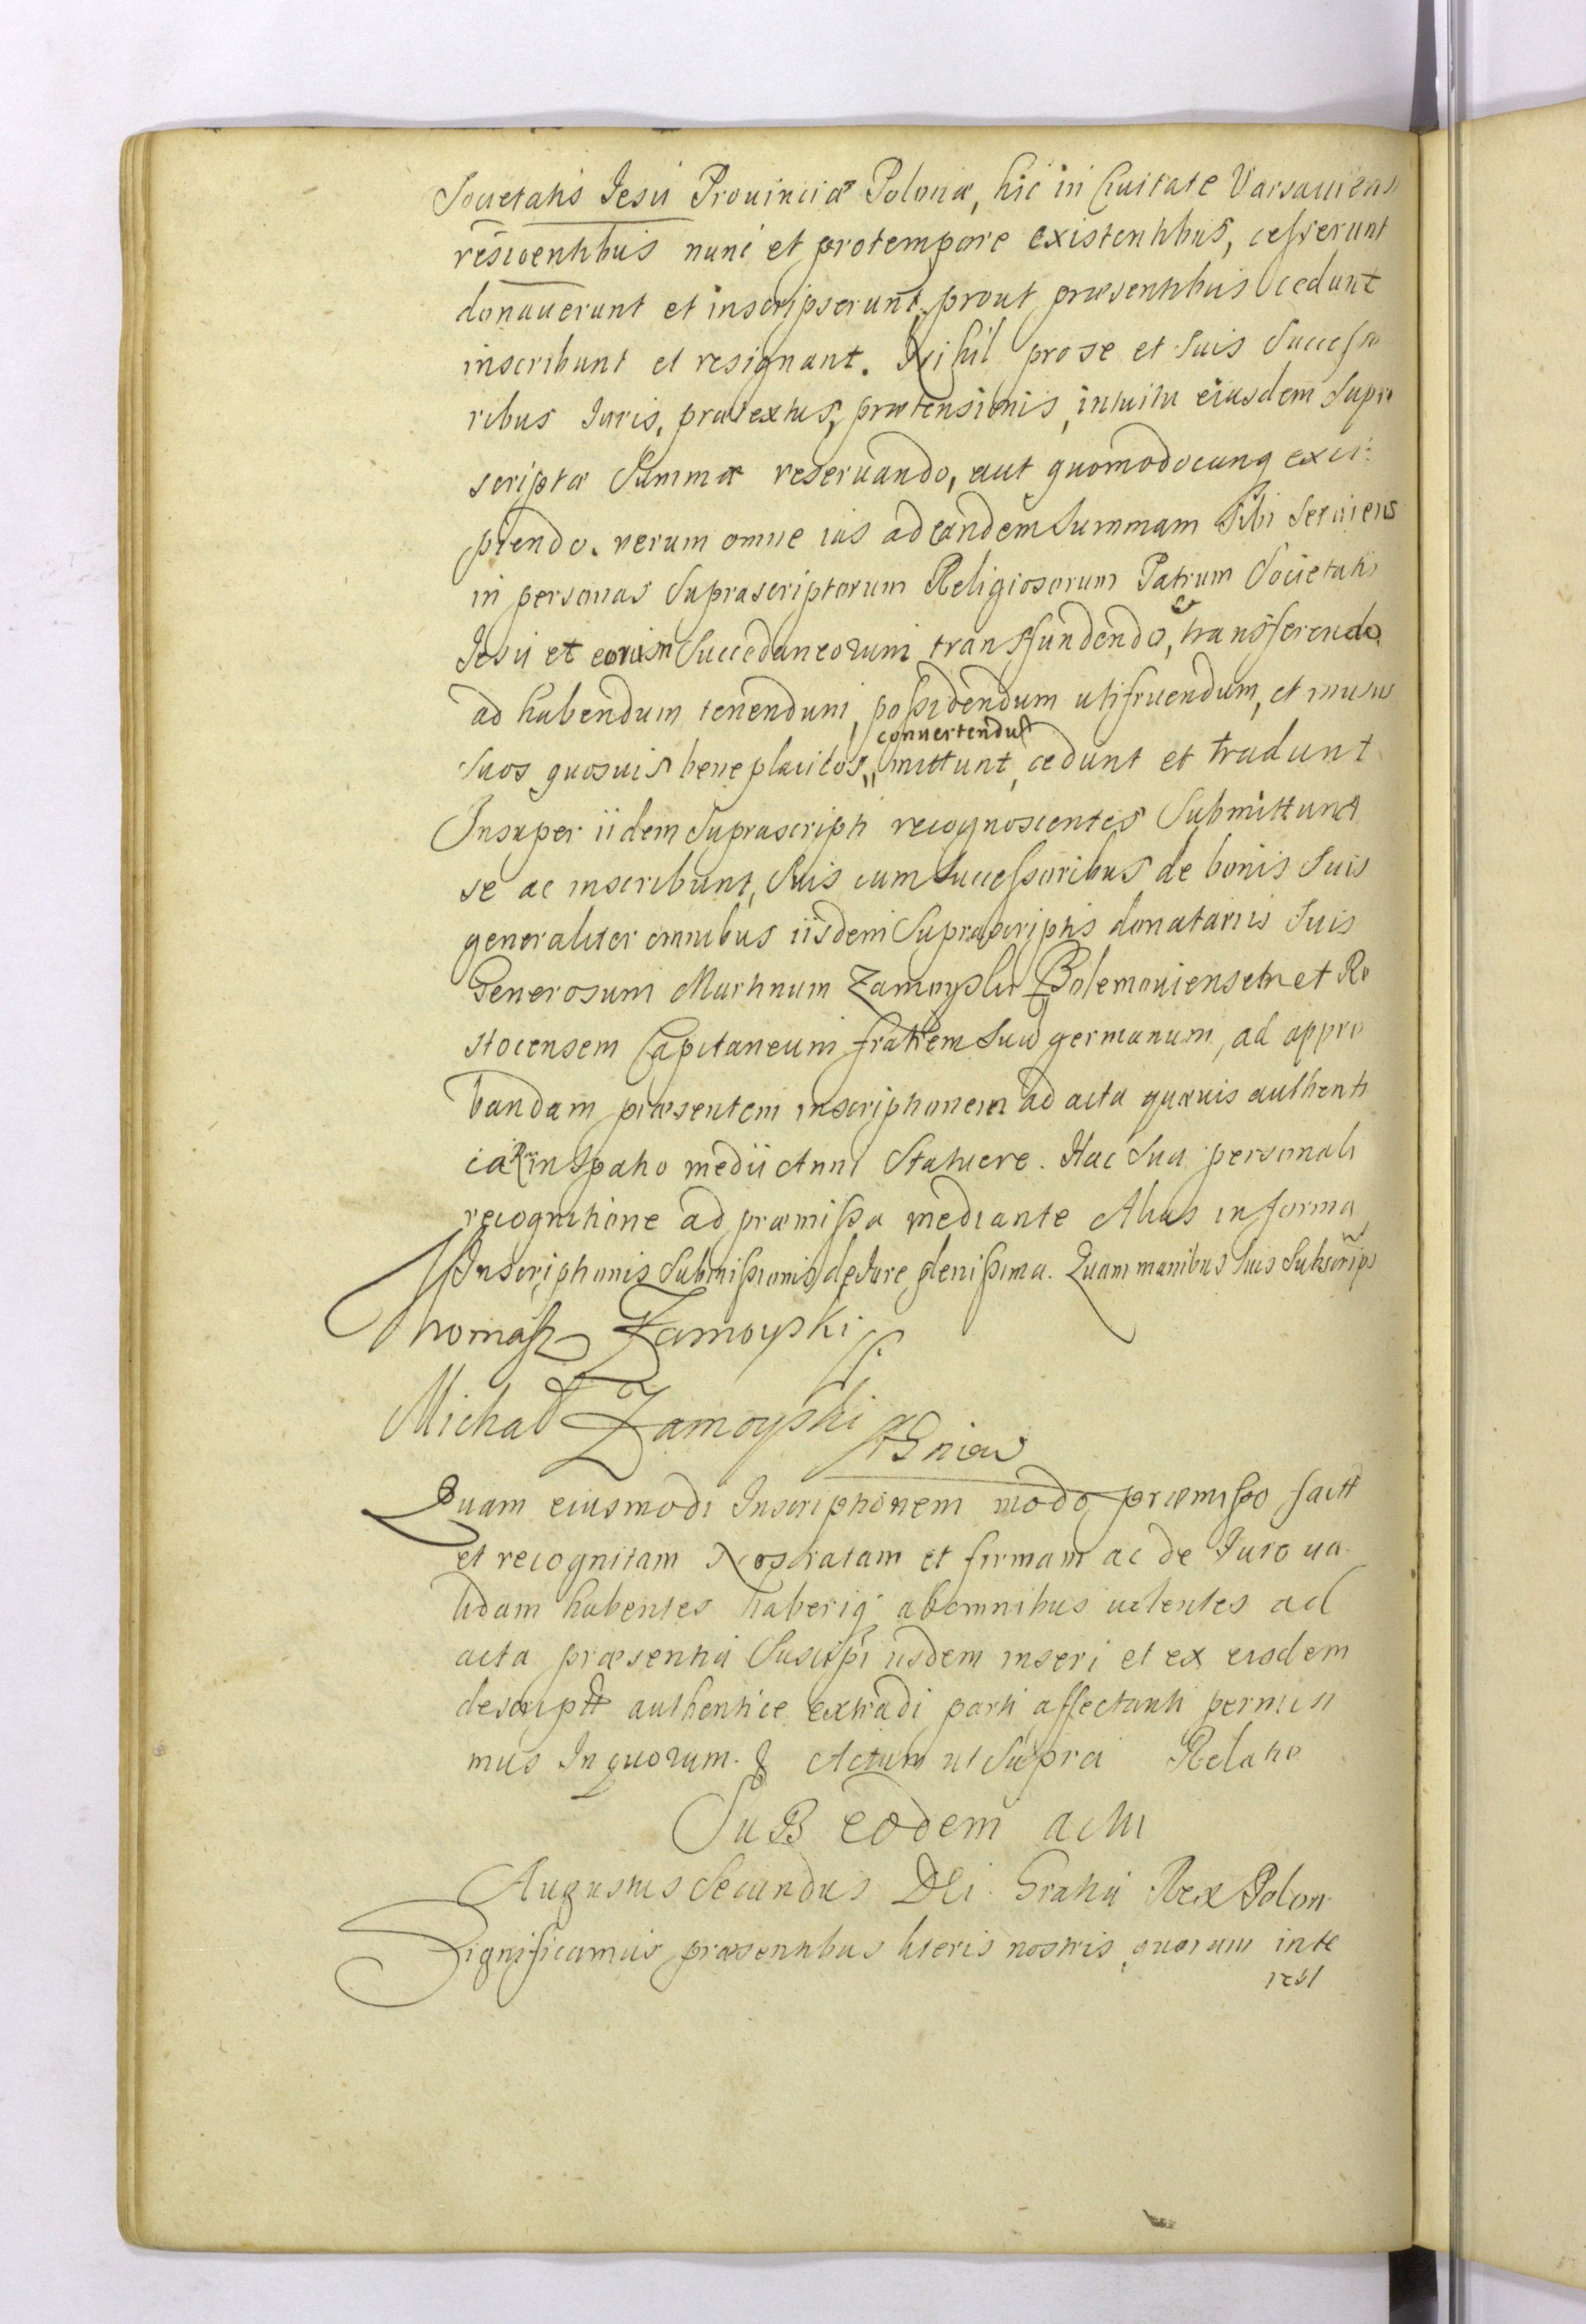 Societatis Jesu Prouinciæ Poloniæ, hic in Ciuitate Varsauiensi
residentibus nunc et protempore existentibus, cesserunt
donauerunt et inscripserunt, prout præsentibus cedunt
inscribunt et resignant. Nihil pro se et suis Successo
ribus Juris, prætextus, prætensionis, intuitu eiusdem supra
scriptæ Summæ reseruando, aut quomodocunq exci:
piendo. verum omne ius ad eandem Summam sibi seruiens
in personas Suprascriptorum Religiosorum Patrum Societatis
Jesu et eorum Succedaneorum transfundendo, et transferendo
ad habendum tenendum, possidendum utifruendum, et in usus
convertendū
suos quosuis beneplacitos, mittunt, cedunt et tradunt
Insuper iidem Suprascripti recognoscentes Submittunt
se ac inscribunt, Suis cum Successoribus de bonis suis
generaliter omnibus iisdem Suprascriptis donatariis suis
Generosum Martinum Zamoyski Bolemouiensem et Ro
stocensem Capitaneum fratrem suū germanum, ad appro
bandam præsentem inscriptionem ad acta quæuis authenti
ca in spatio medii Anni Statuere. Hac sua personali
recognitione ad præmissa mediante Alias in forma
Inscriptionis Submissionis de Jure plenissima. Quam manibus suis Subscrips
Thomasz Zamoyski
Michał Zamoyski S Gniew
Quam eiusmodi Inscriptionem modo præmisso factā
et recognitam Nos ratam et firmam ac de Jure ua
lidam habentes haberiq ab omnibus uolentes ad
acta præsentia Suscipi iisdem inseri et ex eisdem
descriptā authentice extradi parti affectanti permisi
mus In quorum. & Actum ut Supra Relatio
Sub eodem actu
Augustus Secundus Dei Gratia Rex Polon
Significamus præsentibus literis nostris, quorum inte
rest